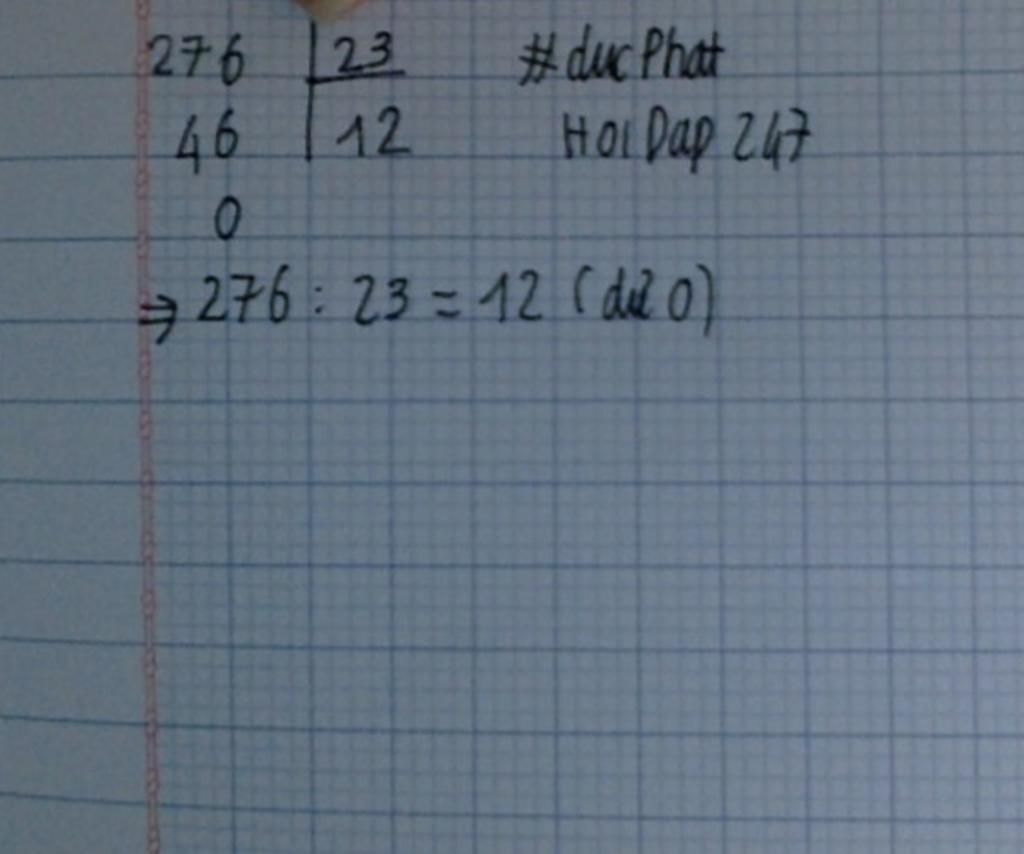 276 | 23 #ducPhat
46 | 12 HoiDap 247
0
⇒ 276 : 23 = 12 (dư 0)